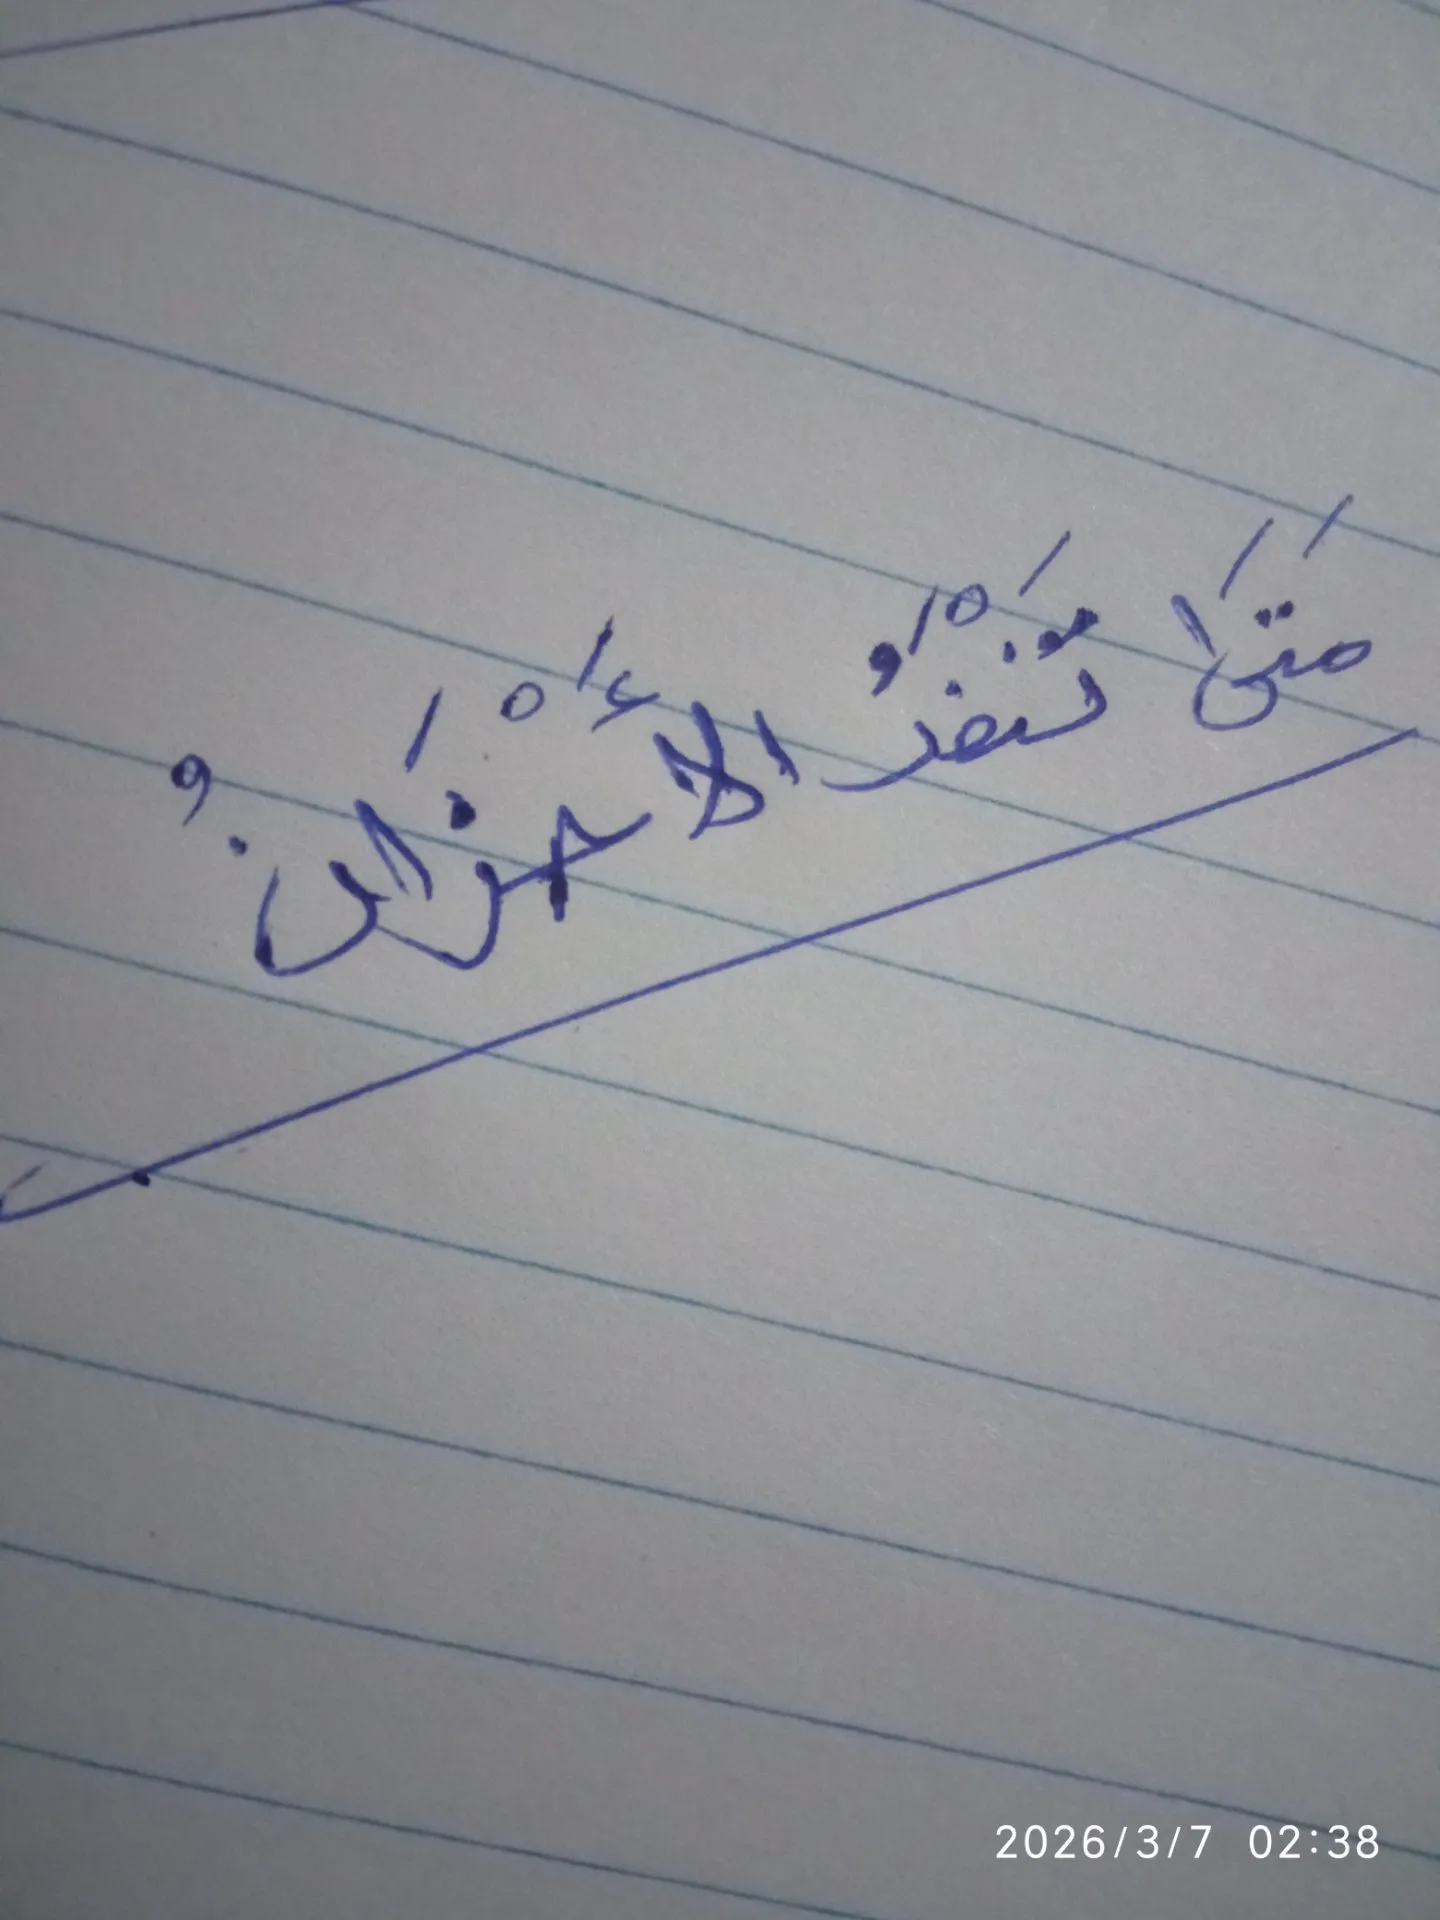 مَتَىَ تَنْفَدُ الأَحْزَانُ
2026/3/7 02:38